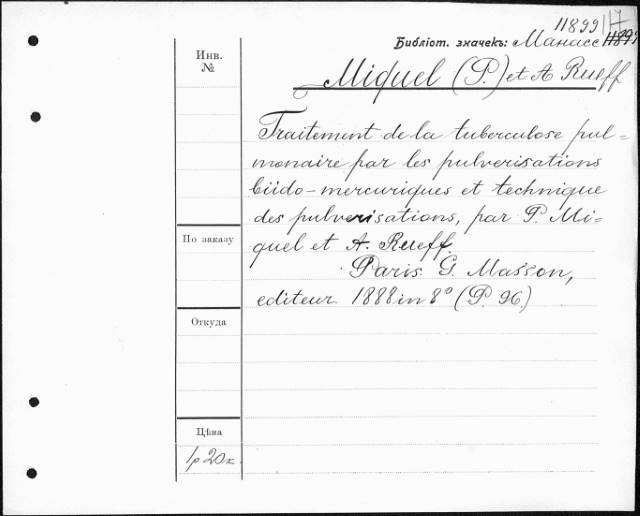 11899/17
Библіот. значекъ: Манасс 11899
Инв.
№
Miquel (P.) et A Rueff
Traitement de la tuberculose pul=
monaire par les pulverisations
biido-mercuriques et technique
des pulverisations, par P. Mi=
quel et A. Rueff.
По заказу
Paris. G. Masson,
editeur. 1888 in 8° (P. 96)
Откуда
Цѣна
1р 20к